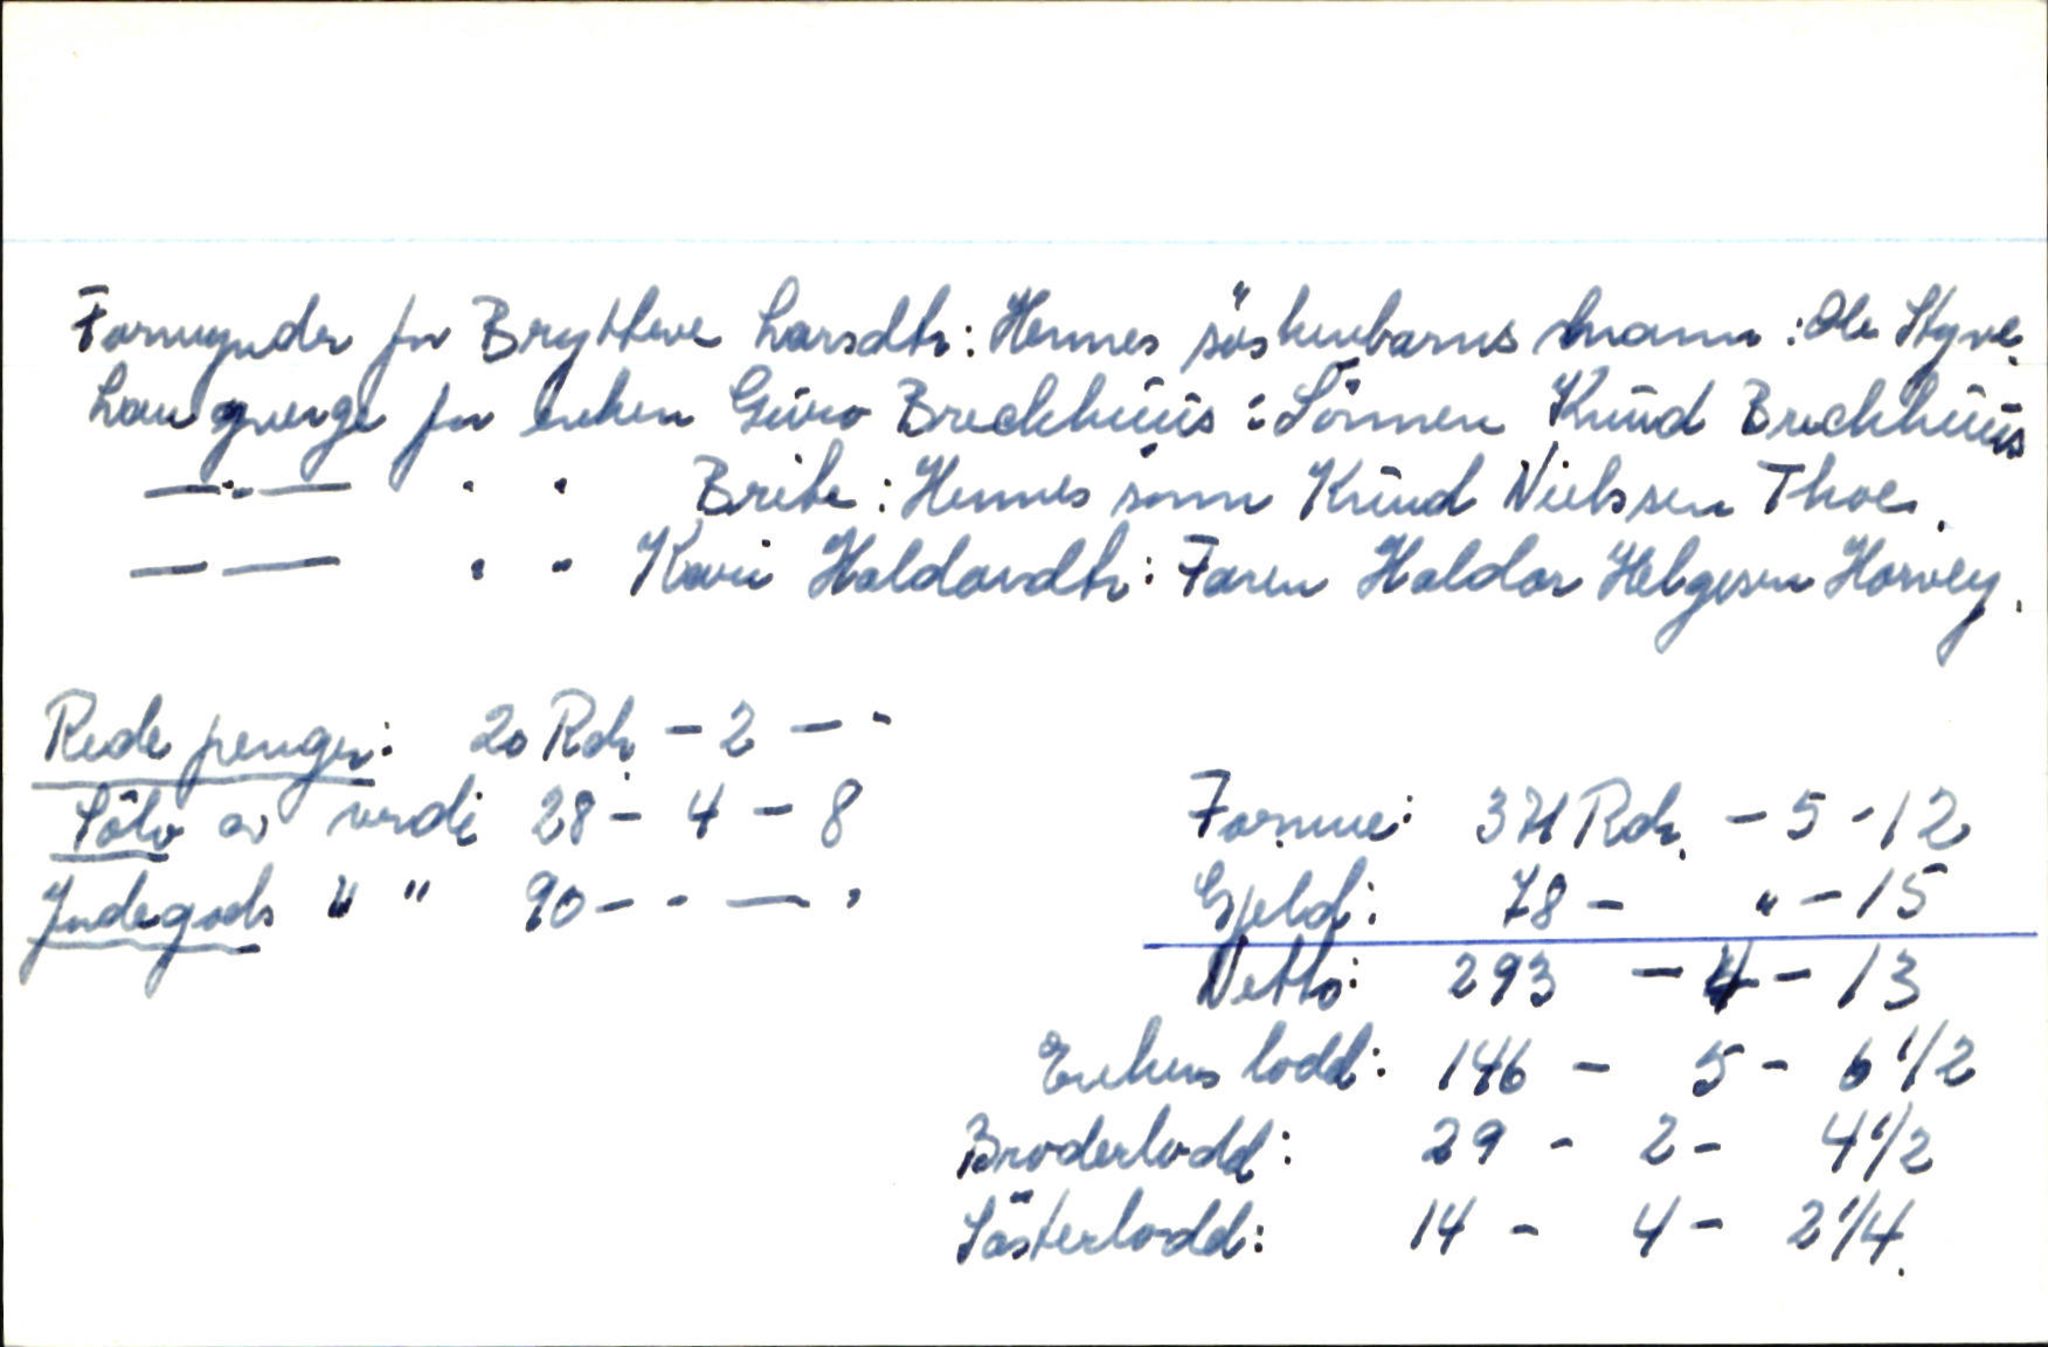 Formynder for Brytteve Larsdtr: Hennes söskenbarns mann: Ole Styve.
Laugverge for enken Gùro Brechhùùs: Sönnen Knùd Brechhùùs
—"— " " Brite: Hennes sönn Knùd Nielssen Thoe.
— — " " Kari Haldorsdtr: Faren Haldor Helgesen Horvey.
Rede penger: 20 Rdr. - 2 - "
Sölv av verdi 28 - 4 - 8
Jndegods " " 90 - " — "
Formue: 371 Rdr. - 5 - 12
Gjeld: 78 - " - 15
Netto: 293 - 4 - 13
Enkens lodd: 146 - 5 - 6 1/2
Broderlodd: 29 - 2 - 4 1/2
Sösterlodd: 14 - 4 - 2 1/4.